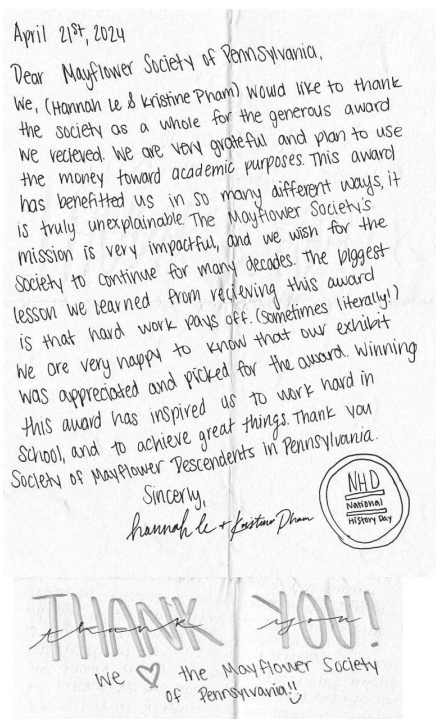 April 21st, 2024
Dear Mayflower Society of Pennsylvania,
We, (Hannah Le & Kristine Pham) would like to thank
the society as a whole for the generous award
we recieved. We are very grateful and plan to use
the money toward academic purposes. This award
has benefitted us in so many different ways, it
is truly unexplainable. The Mayflower Society's
mission is very impactful, and we wish for the
society to continue for many decades. The biggest
lesson we learned from recieving this award
is that hard work pays off. (Sometimes literally!)
We are very happy to know that our exhibit
was appreciated and picked for the award. Winning
this award has inspired us to work hard in
school, and to achieve great things. Thank you
Society of Mayflower Descendents in Pennsylvania.
Sincerly,
hannah le + Kristine Pham
NHD
National
History Day
THANK YOU!
thank you
We ♡ the Mayflower Society
of Pennsylvania!!